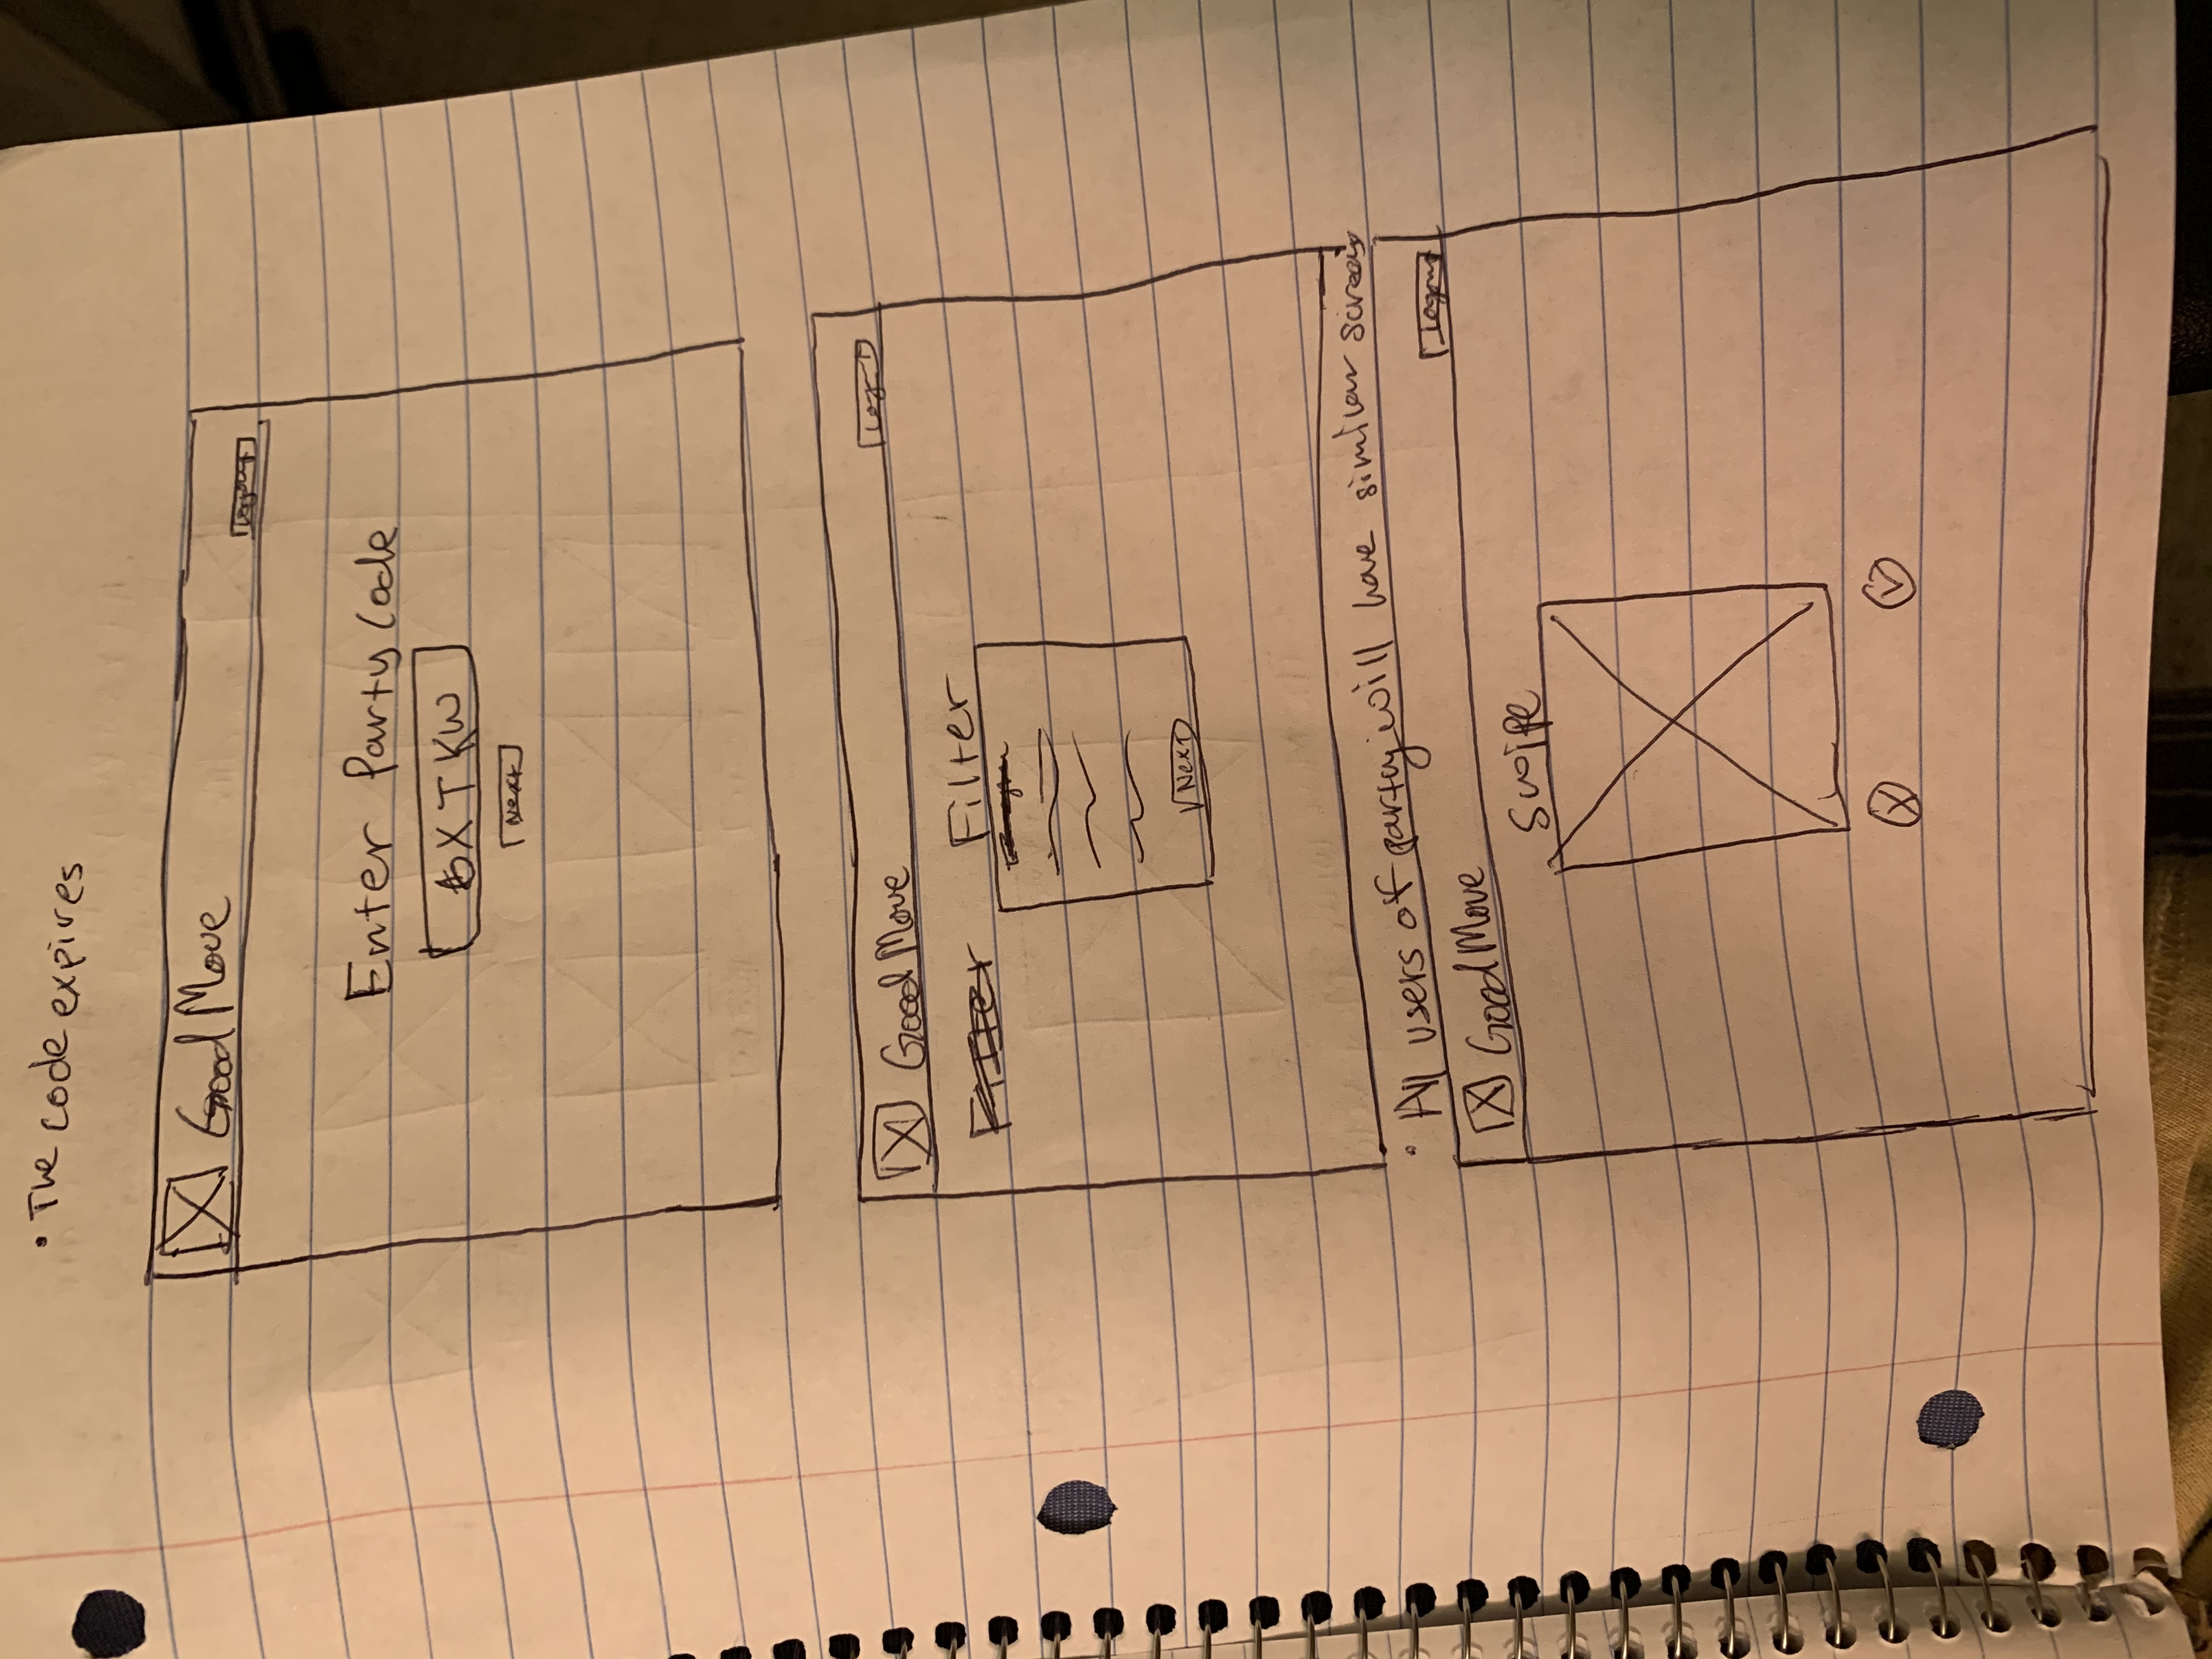 • The code expires
Good Move
Logout
Enter Party Code
XTKW
Next
Good Move
Logout
Filter
Filter
Next
• All users of party will have similar screens
Good Move
Logout
Swipe